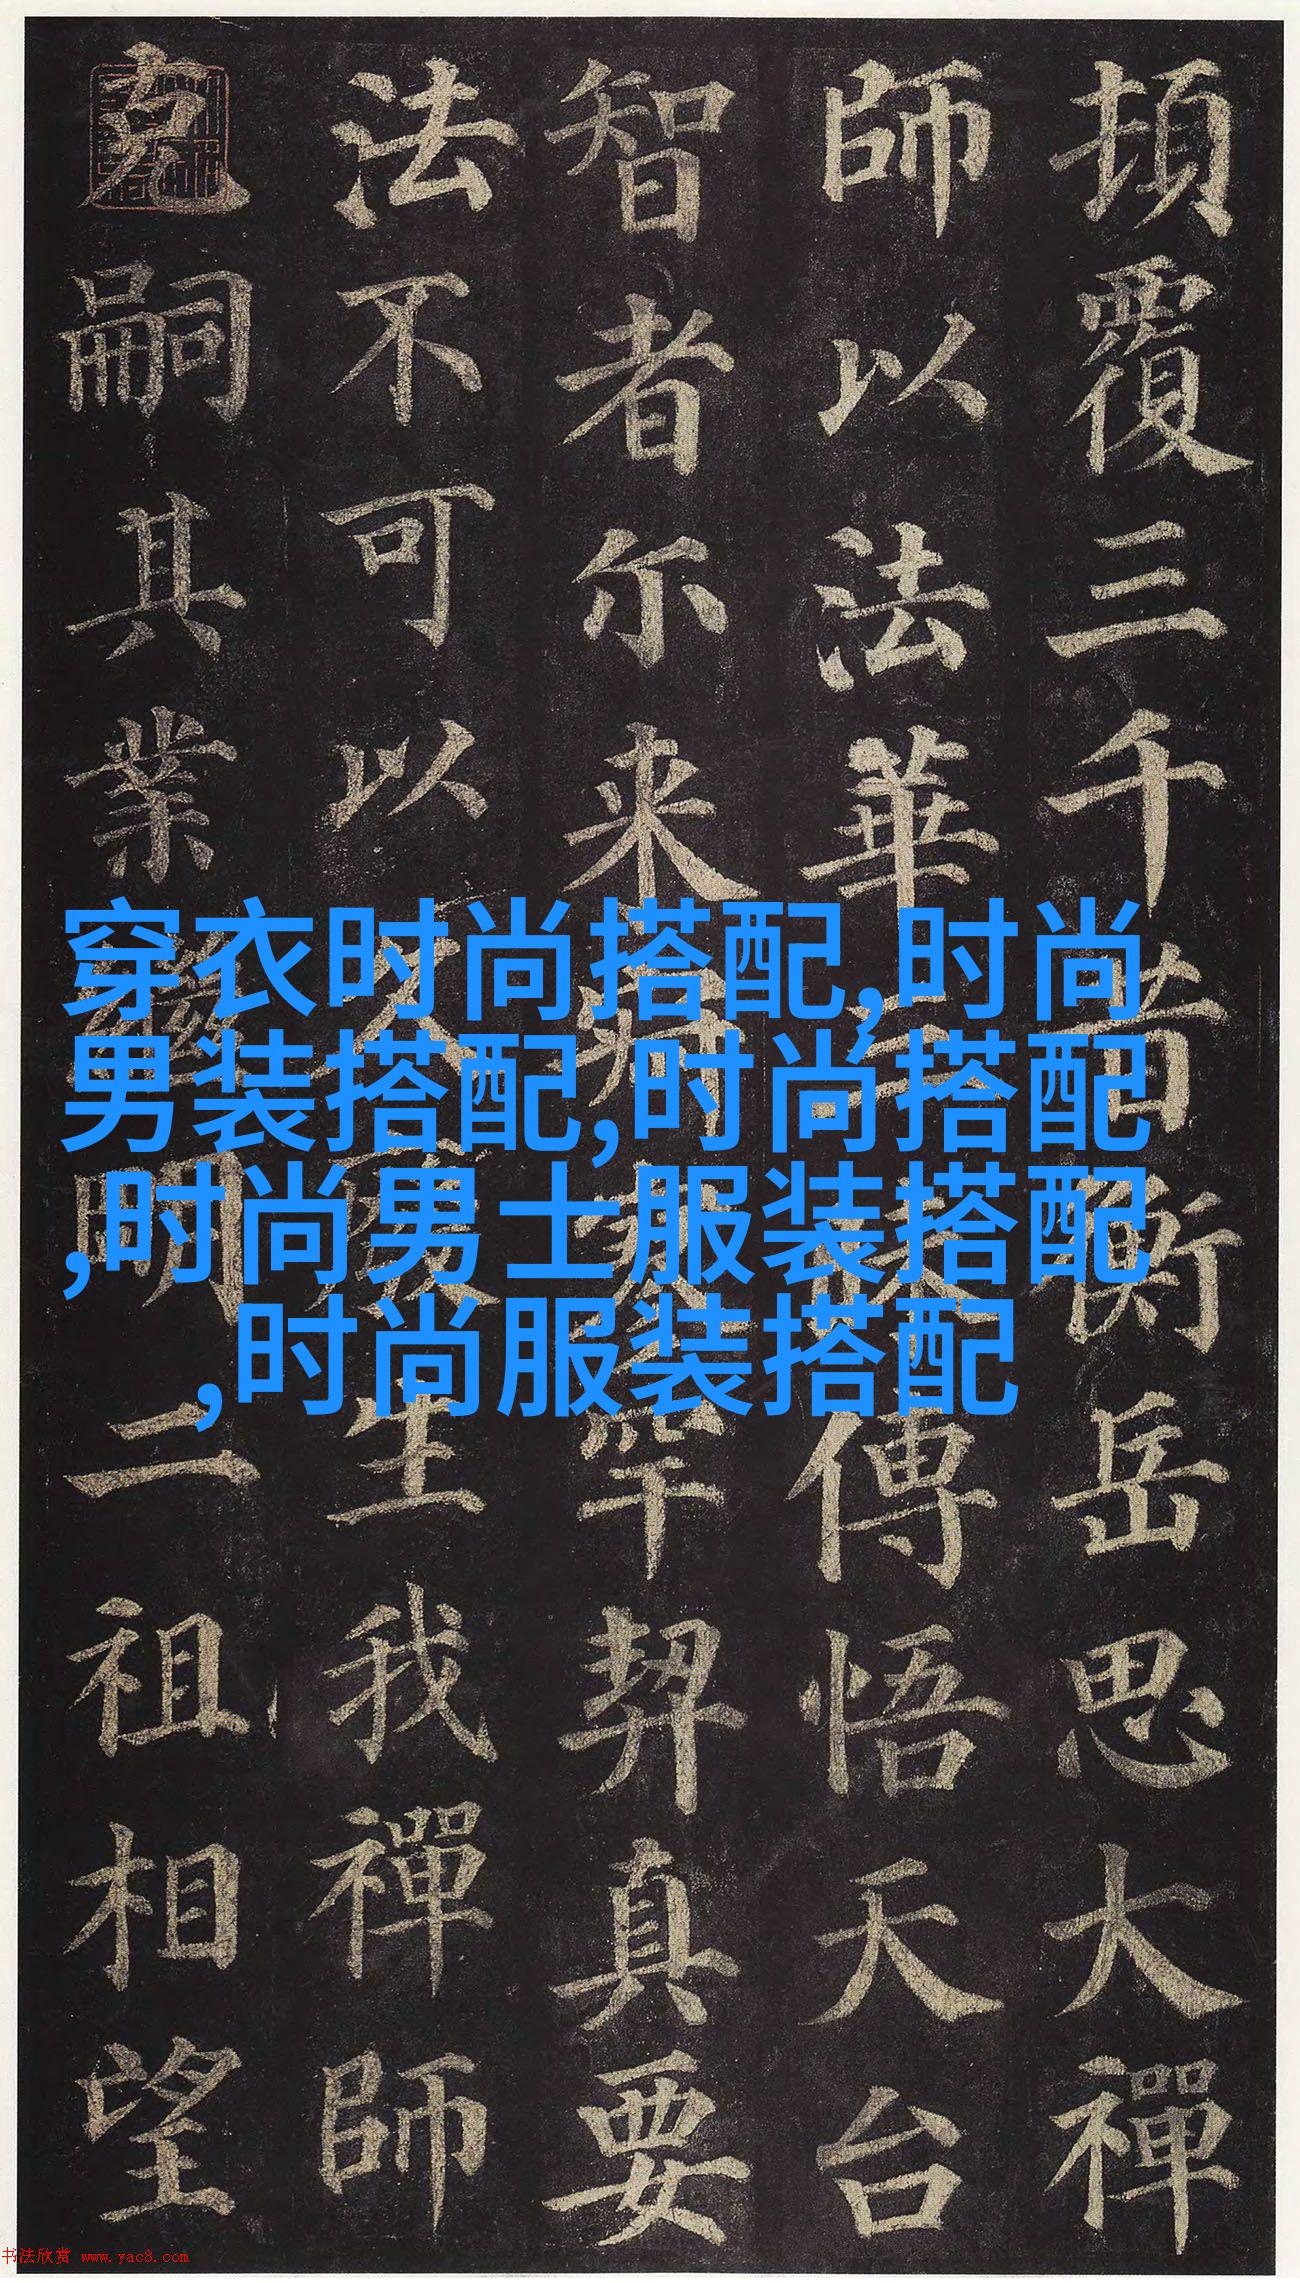 穿衣时尚搭配,时尚
男装搭配,时尚搭配
,时尚男士服装搭配
,时尚服装搭配
頓覆三千昔衡岳思大禪
師以法華三昧傳悟天台
智者尔来寂寥罕契真要
法不可以久廢生我禪師
克嗣其業繼明二祖相望
书法欣赏 www.yac8.com